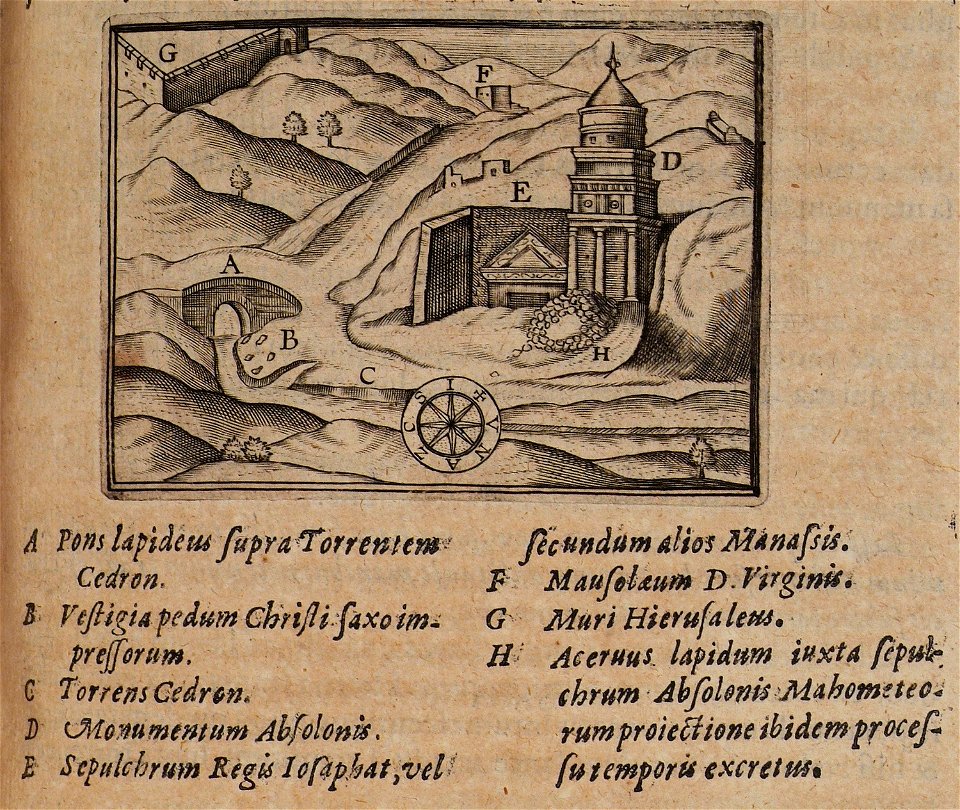 G
F
D
E
A
B
H
C
I
S
C
Z
A
N
V
A Pons lapideus ſupra Torrentem
Cedron.
B Veſtigia pedum Chriſti ſaxo im-
preſſorum.
C Torrens Cedron.
D Monumentum Abſolonis.
E Sepulchrum Regis Ioſaphat, vel
ſecundum alios Manaſsis.
F Mauſolæum D. Virginis.
G Muri Hieruſaleus.
H Aceruus lapidum iuxta ſepul-
chrum Abſolonis Mahometeo-
rum proiectione ibidem proceſ-
ſu temporis excretus.